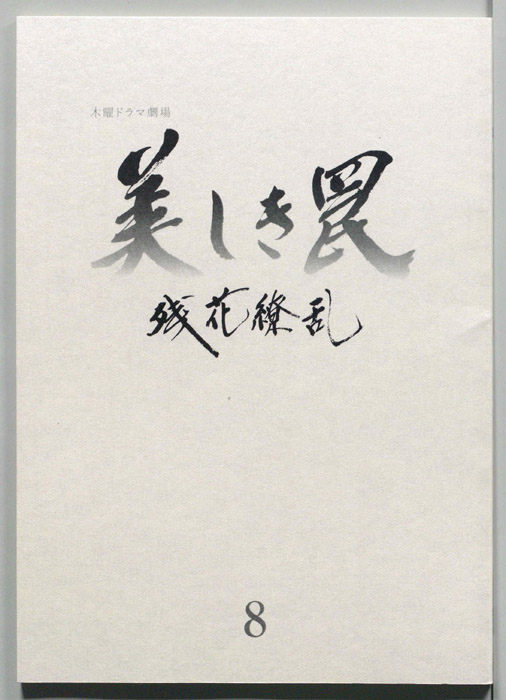 木曜ドラマ劇場
美しき罠
残花繚乱
8